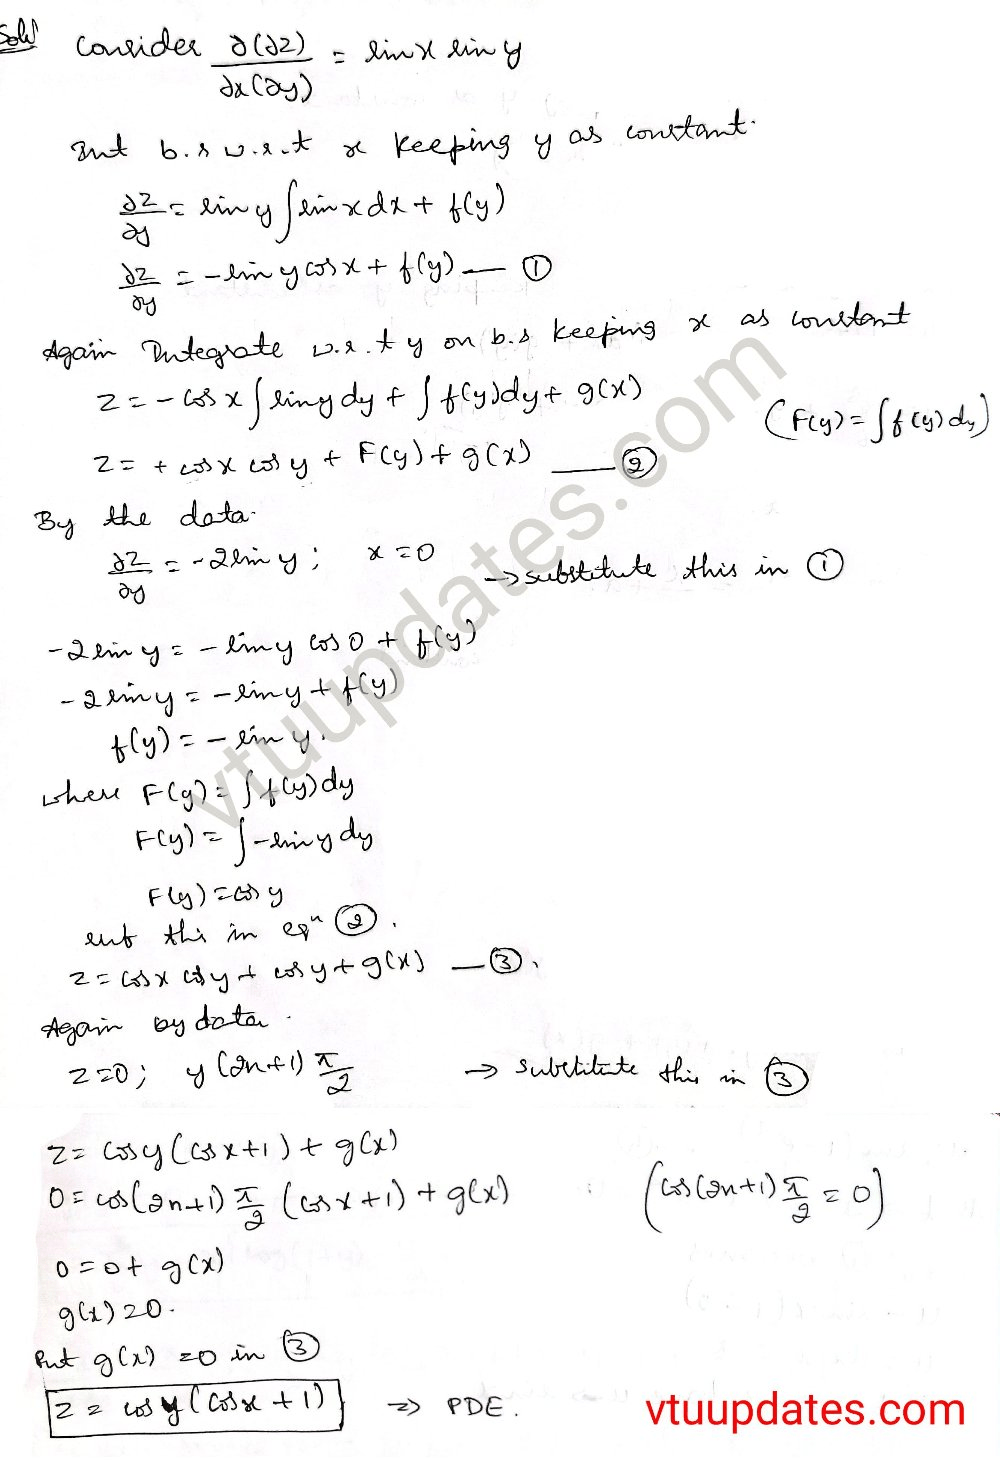 Soln
Consider ∂(∂z)/∂x(∂y) = sinx siny
Int b.s w.r.t x keeping y as constant.
∂z/∂y = sin y ∫ sin x dx + f(y)
∂z/∂y = -sin y cos x + f(y) — ①
Again Integrate w.r.t y on b.s keeping x as constant
z = - cos x ∫ sin y dy + ∫ f(y) dy + g(x)
(F(y) = ∫ f(y) dy)
z = + cos x cos y + F(y) + g(x) — ②
By the data.
∂z/∂y = -2 sin y ; x = 0 → substitute this in ①
-2 sin y = - sin y cos 0 + f(y)
-2 sin y = - sin y + f(y)
f(y) = - sin y.
where F(y) = ∫ f(y) dy
F(y) = ∫ - sin y dy
F(y) = cos y
sub this in eqn ②.
z = cos x cos y + cos y + g(x) — ③.
Again by data.
z = 0 ; y (2n+1) π/2 → substitute this in ③
z = cos y (cos x + 1) + g(x)
0 = cos(2n+1) π/2 (cos x + 1) + g(x) (cos(2n+1) π/2 = 0)
0 = 0 + g(x)
g(x) = 0.
Put g(x) = 0 in ③
z = cos y (cos x + 1) ⇒ PDE.
vtuupdates.com
vtuupdates.com